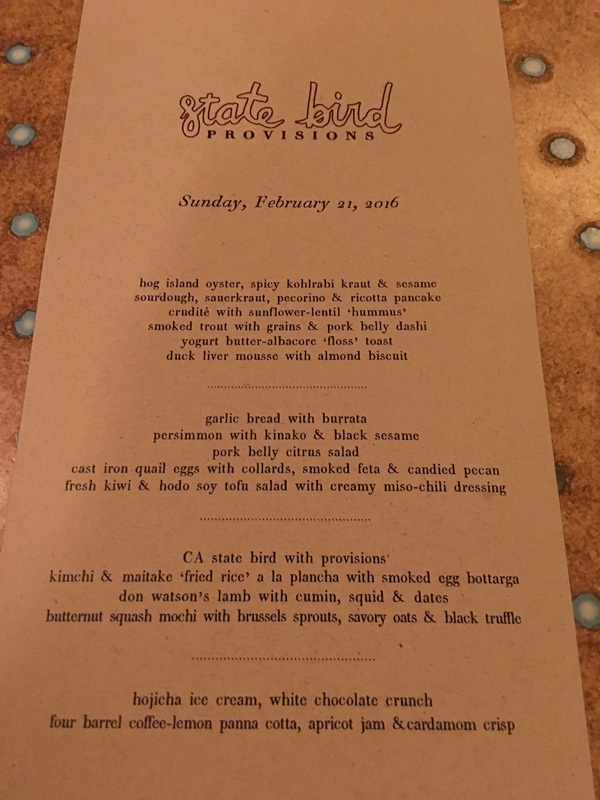 state bird
PROVISIONS
Sunday, February 21, 2016
hog island oyster, spicy kohlrabi kraut & sesame
sourdough, sauerkraut, pecorino & ricotta pancake
crudité with sunflower-lentil ‘hummus’
smoked trout with grains & pork belly dashi
yogurt butter-albacore ‘floss’ toast
duck liver mousse with almond biscuit
garlic bread with burrata
persimmon with kinako & black sesame
pork belly citrus salad
cast iron quail eggs with collards, smoked feta & candied pecan
fresh kiwi & hodo soy tofu salad with creamy miso-chili dressing
CA state bird with provisions'
kimchi & maitake ‘fried rice’ a la plancha with smoked egg bottarga
don watson's lamb with cumin, squid & dates
butternut squash mochi with brussels sprouts, savory oats & black truffle
hojicha ice cream, white chocolate crunch
four barrel coffee-lemon panna cotta, apricot jam & cardamom crisp